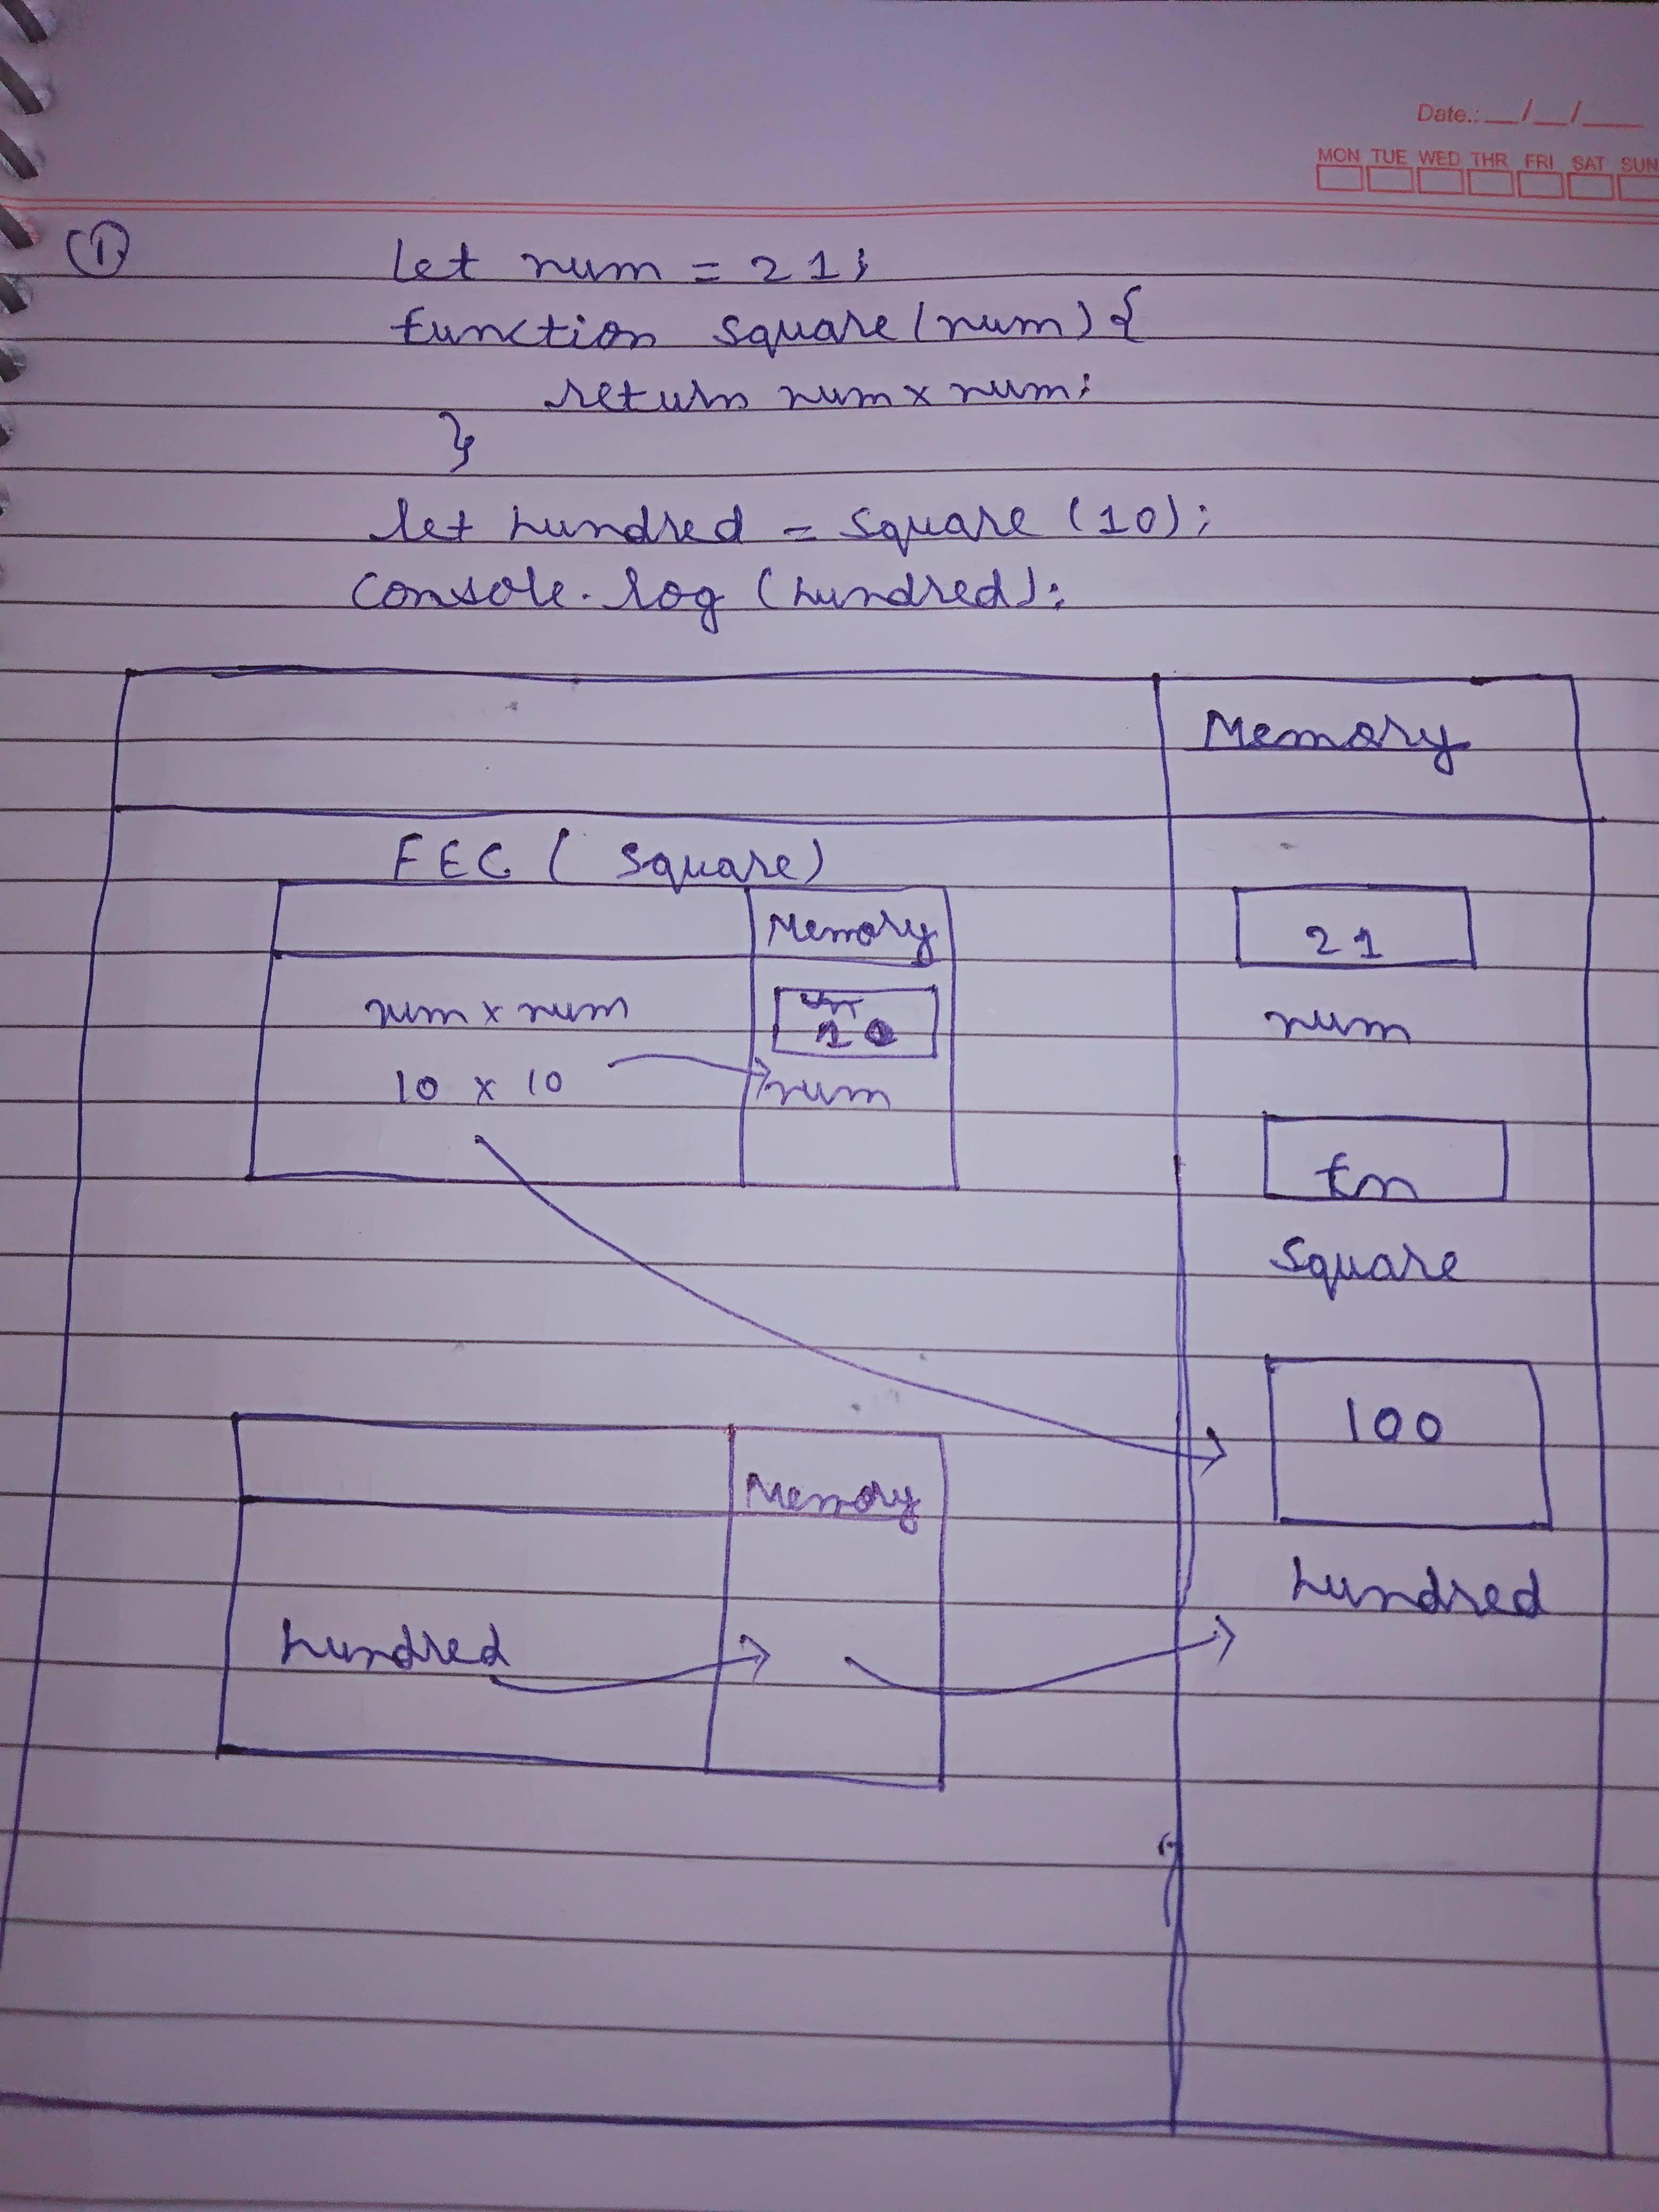 Date.: __/__/___
MON TUE WED THR FRI SAT SUN
1
let num = 21;
function square(num){
return num x num;
}
let hundred = square (10);
console.log (hundred);
Memory
FEC ( square)
Memory
21
num x num
10
num
10 x 10
num
fn
square
100
Memory
hundred
hundred